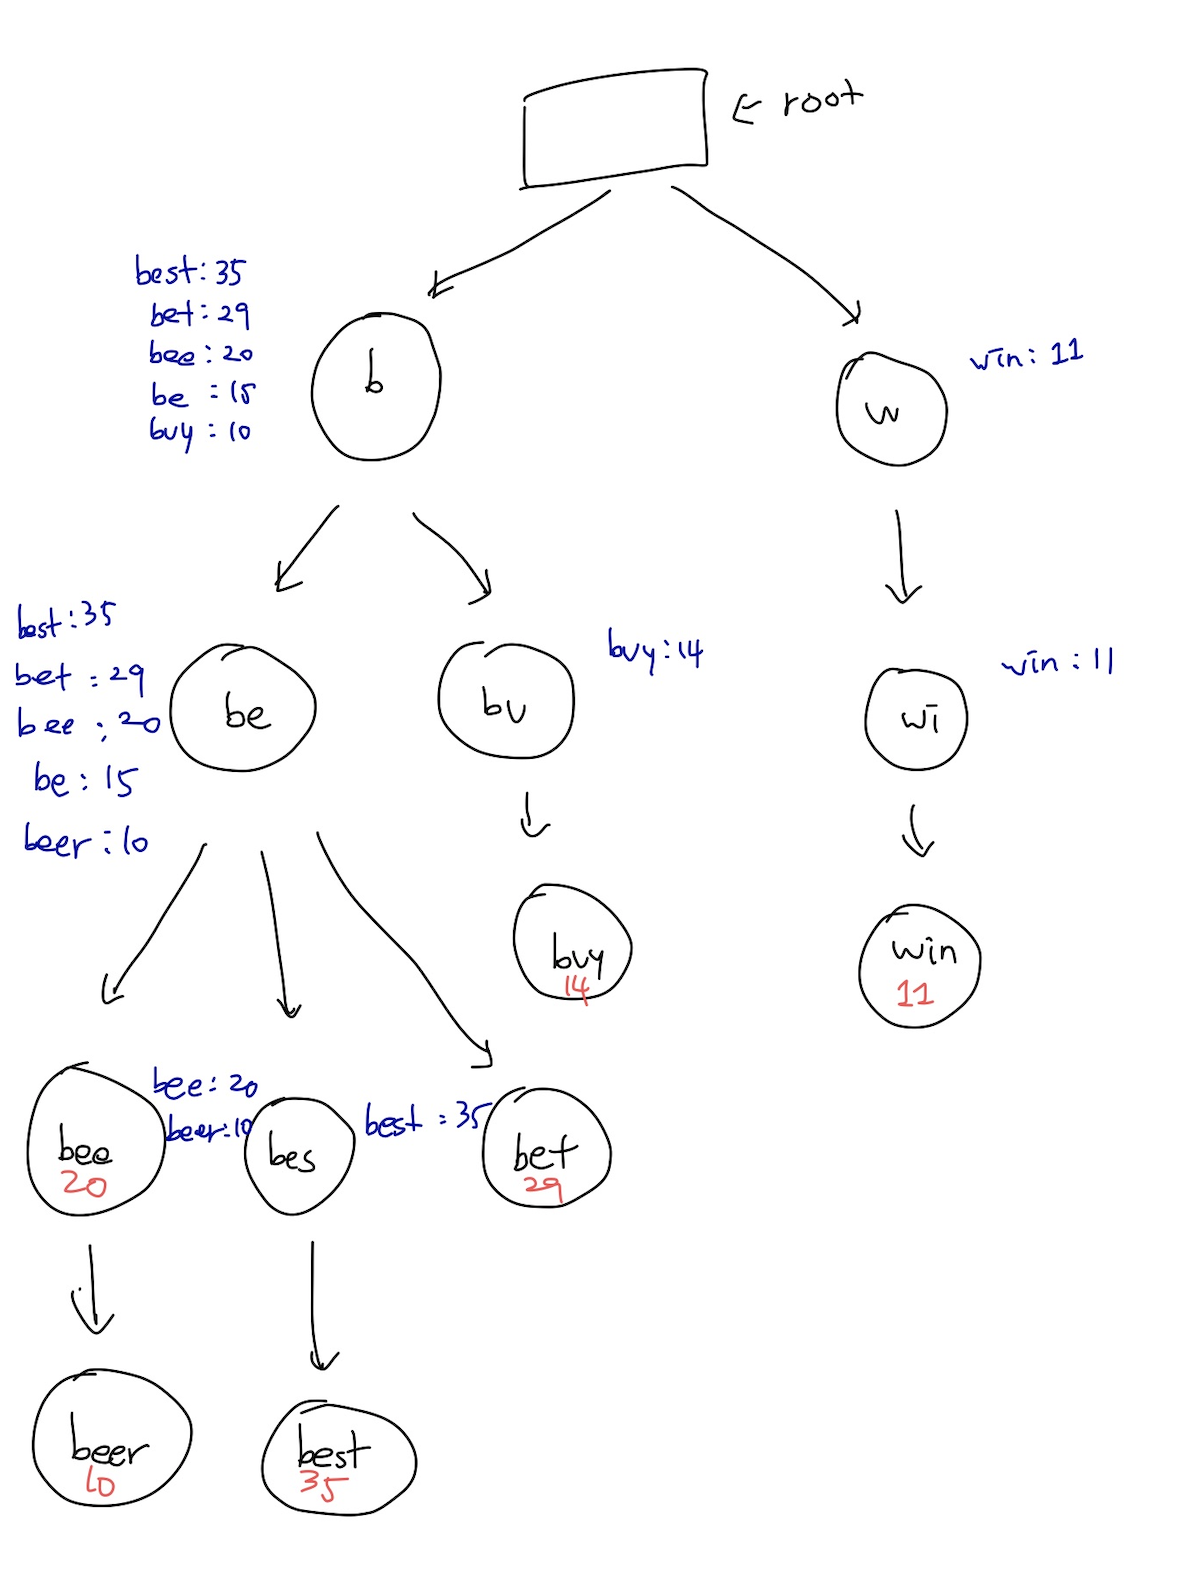 ← root
best: 35
bet: 29
bee: 20
be : 15
buy : 10
b
win: 11
w
best: 35
bet : 29
bee : 20
be : 15
beer : 10
be
bu
buy: 14
wi
win : 11
buy
14
win
11
bee
20
bee: 20
beer: 10
bes
best : 35
bet
29
beer
10
best
35